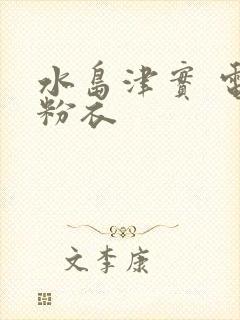 水島津實 電
粉衣
文李康